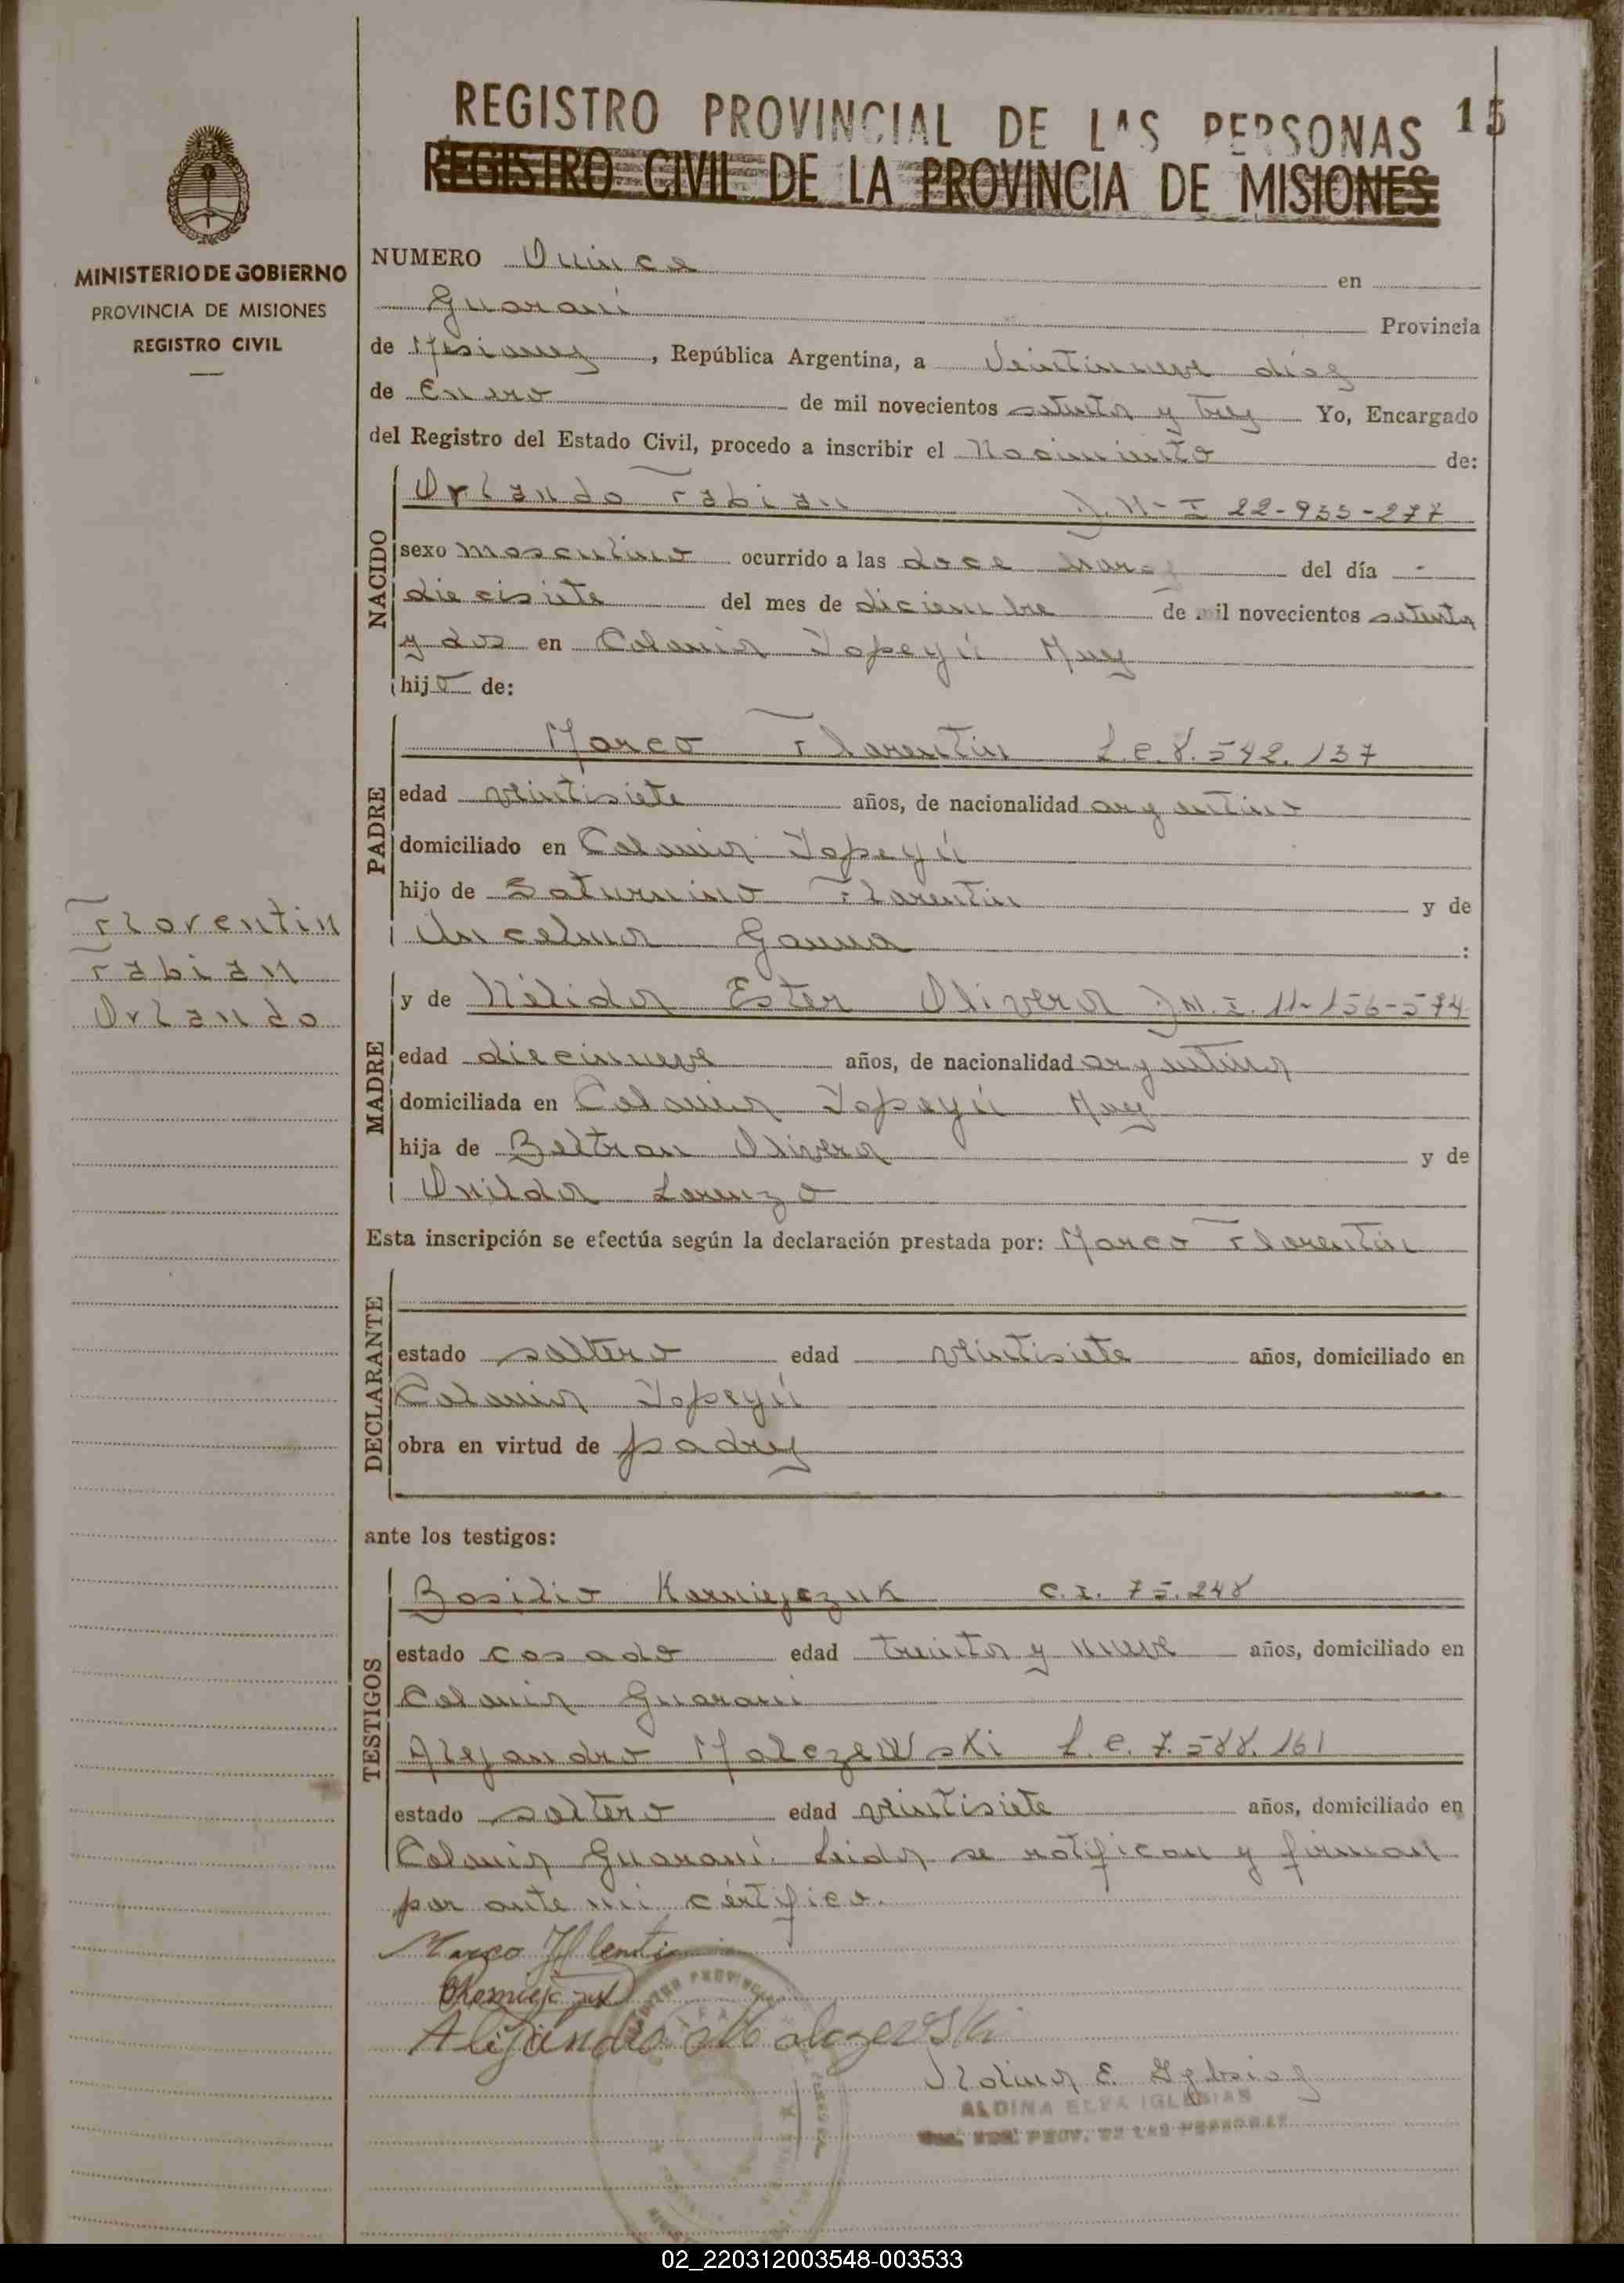 REGISTRO PROVINCIAL DE LAS PERSONAS 15
REGISTRO CIVIL DE LA PROVINCIA DE MISIONES
MINISTERIO DE GOBIERNO
PROVINCIA DE MISIONES
REGISTRO CIVIL
NUMERO Quince en
Guaraní Provincia
de Misiones, República Argentina, a Veintinueve días
de Enero de mil novecientos setenta y tres Yo, Encargado
del Registro del Estado Civil, procedo a inscribir el Nacimiento de:
NACIDO
Orlando Fabian D.N-I 22-955-277
sexo masculino ocurrido a las doce horas del día
diecisiete del mes de diciembre de mil novecientos setenta
y dos en Colonia Yapeyú Muy
hijo de:
PADRE
Marco Florentín L.E. 8.542.137
edad veintisiete años, de nacionalidad argentino
domiciliado en Colonia Yapeyú
hijo de Saturnino Florentín y de
Ancelma Gauna :
Florentin
Fabian
Orlando
MADRE
y de Nélida Ester Olivera D.N.I. 11-156-574
edad diecinueve años, de nacionalidad argentina
domiciliada en Colonia Yapeyú Muy
hija de Beltran Olivera y de
Onilda Lorenzo
Esta inscripción se efectúa según la declaración prestada por: Marco Florentín
DECLARANTE
estado soltero edad veintisiete años, domiciliado en
Colonia Yapeyú
obra en virtud de padre
ante los testigos:
TESTIGOS
Basilio Karniejczuk C.I. 75.248
estado casado edad treinta y nueve años, domiciliado en
Colonia Guaraní
Alejandro Malczewski L.E. 7.588.161
estado soltero edad veintisiete años, domiciliado en
Colonia Guaraní. Leida se notifican y firman
por ante mi certifico.
Marco
Alejandro Malczewski
Aldina E. Iglesias
ALDINA ELSA IGLESIAS
PROV. DE LAS PERSONAS
02_220312003548-003533